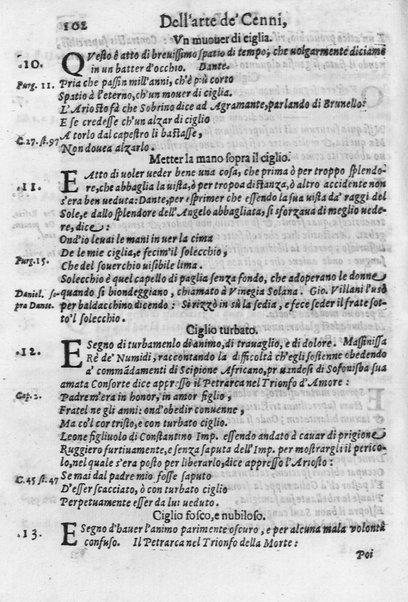 102 Dell'arte de' Cenni,
Vn muouer di ciglia.
.10. QVesto è atto di breuissimo spatio di tempo, che uolgarmente diciamo
in un batter d'occhio. Dante.
Purg. 11. Pria che passin mill'anni, ch'è più corto
Spatio à l'eterno, ch'un mouer di ciglia.
L'Ariosto fà che Sobrino dice ad Agramante, parlando di Brunello:
E se credesse ch'un alzar di ciglio
C. 27. st. 97 A torlo dal capestro li bastasse,
Non douea alzarlo.
Metter la mano sopra il ciglio.
.11. E Atto di uoler ueder bene una cosa, che prima ò per troppo splendo-
re, che abbaglia la uista, ò per tropoa distanza, ò altro accidente non
s'era ben ueduta: Dante, per esprimer che essendo la sua uista da' raggi del
Sole, e dallo splendore dell'Angelo abbagliata, si sforzaua di meglio uede-
re, dice:
Ond'io leuai le mani in uer la cima
Purg. 15. De le mie ciglia, e fecim'il solecchio,
Che del souerchio uisibile lima.
Solecchio è quel capello di paglia senza fondo, che adoperano le donne
Daniel. so- quando si biondeggiano, chiamato à Vinegia Solana. Gio. Villani l'usò
pra Dante. per baldacchino dicendo: Si rizzò in sù la sedia, e fece seder il frate sot-
to'l solecchio.
Ciglio turbato.
.12. E Segno di turbamento di animo, di trauaglio, e di dolore. Massinissa
Rè de' Numidi, raccontando la difficoltà ch'egli sostenne obedendo
a' commãdamenti di Scipione Africano, priuandosi di Sofonisba sua
amata Consorte dice appresso il Petrarca nel Trionfo d'Amore:
Cap. 2. Padre m'era in honor, in amor figlio,
Fratel ne gli anni: ond'obedir conuenne,
Ma co'l cor tristo, e con turbato ciglio.
Leone figliuolo di Constantino Imp. essendo andato à cauar di prigione
Ruggiero furtiuamente, e senza saputa dell'Imp. per mostrargli il perico-
lo, nel quale s'era posto per liberarlo, dice appresso l'Ariosto:
C. 45. st. 47 Se mai dal padre mio fosse saputo
D'esser scacciato, ò con turbato ciglio
Perpetuamente esser da lui ueduto.
Ciglio fosco, e nubiloso.
.13. E Segno d'hauer l'animo parimente oscuro, e per alcuna mala volontà
confuso. Il Petrarca nel Trionfo della Morte:
Poi